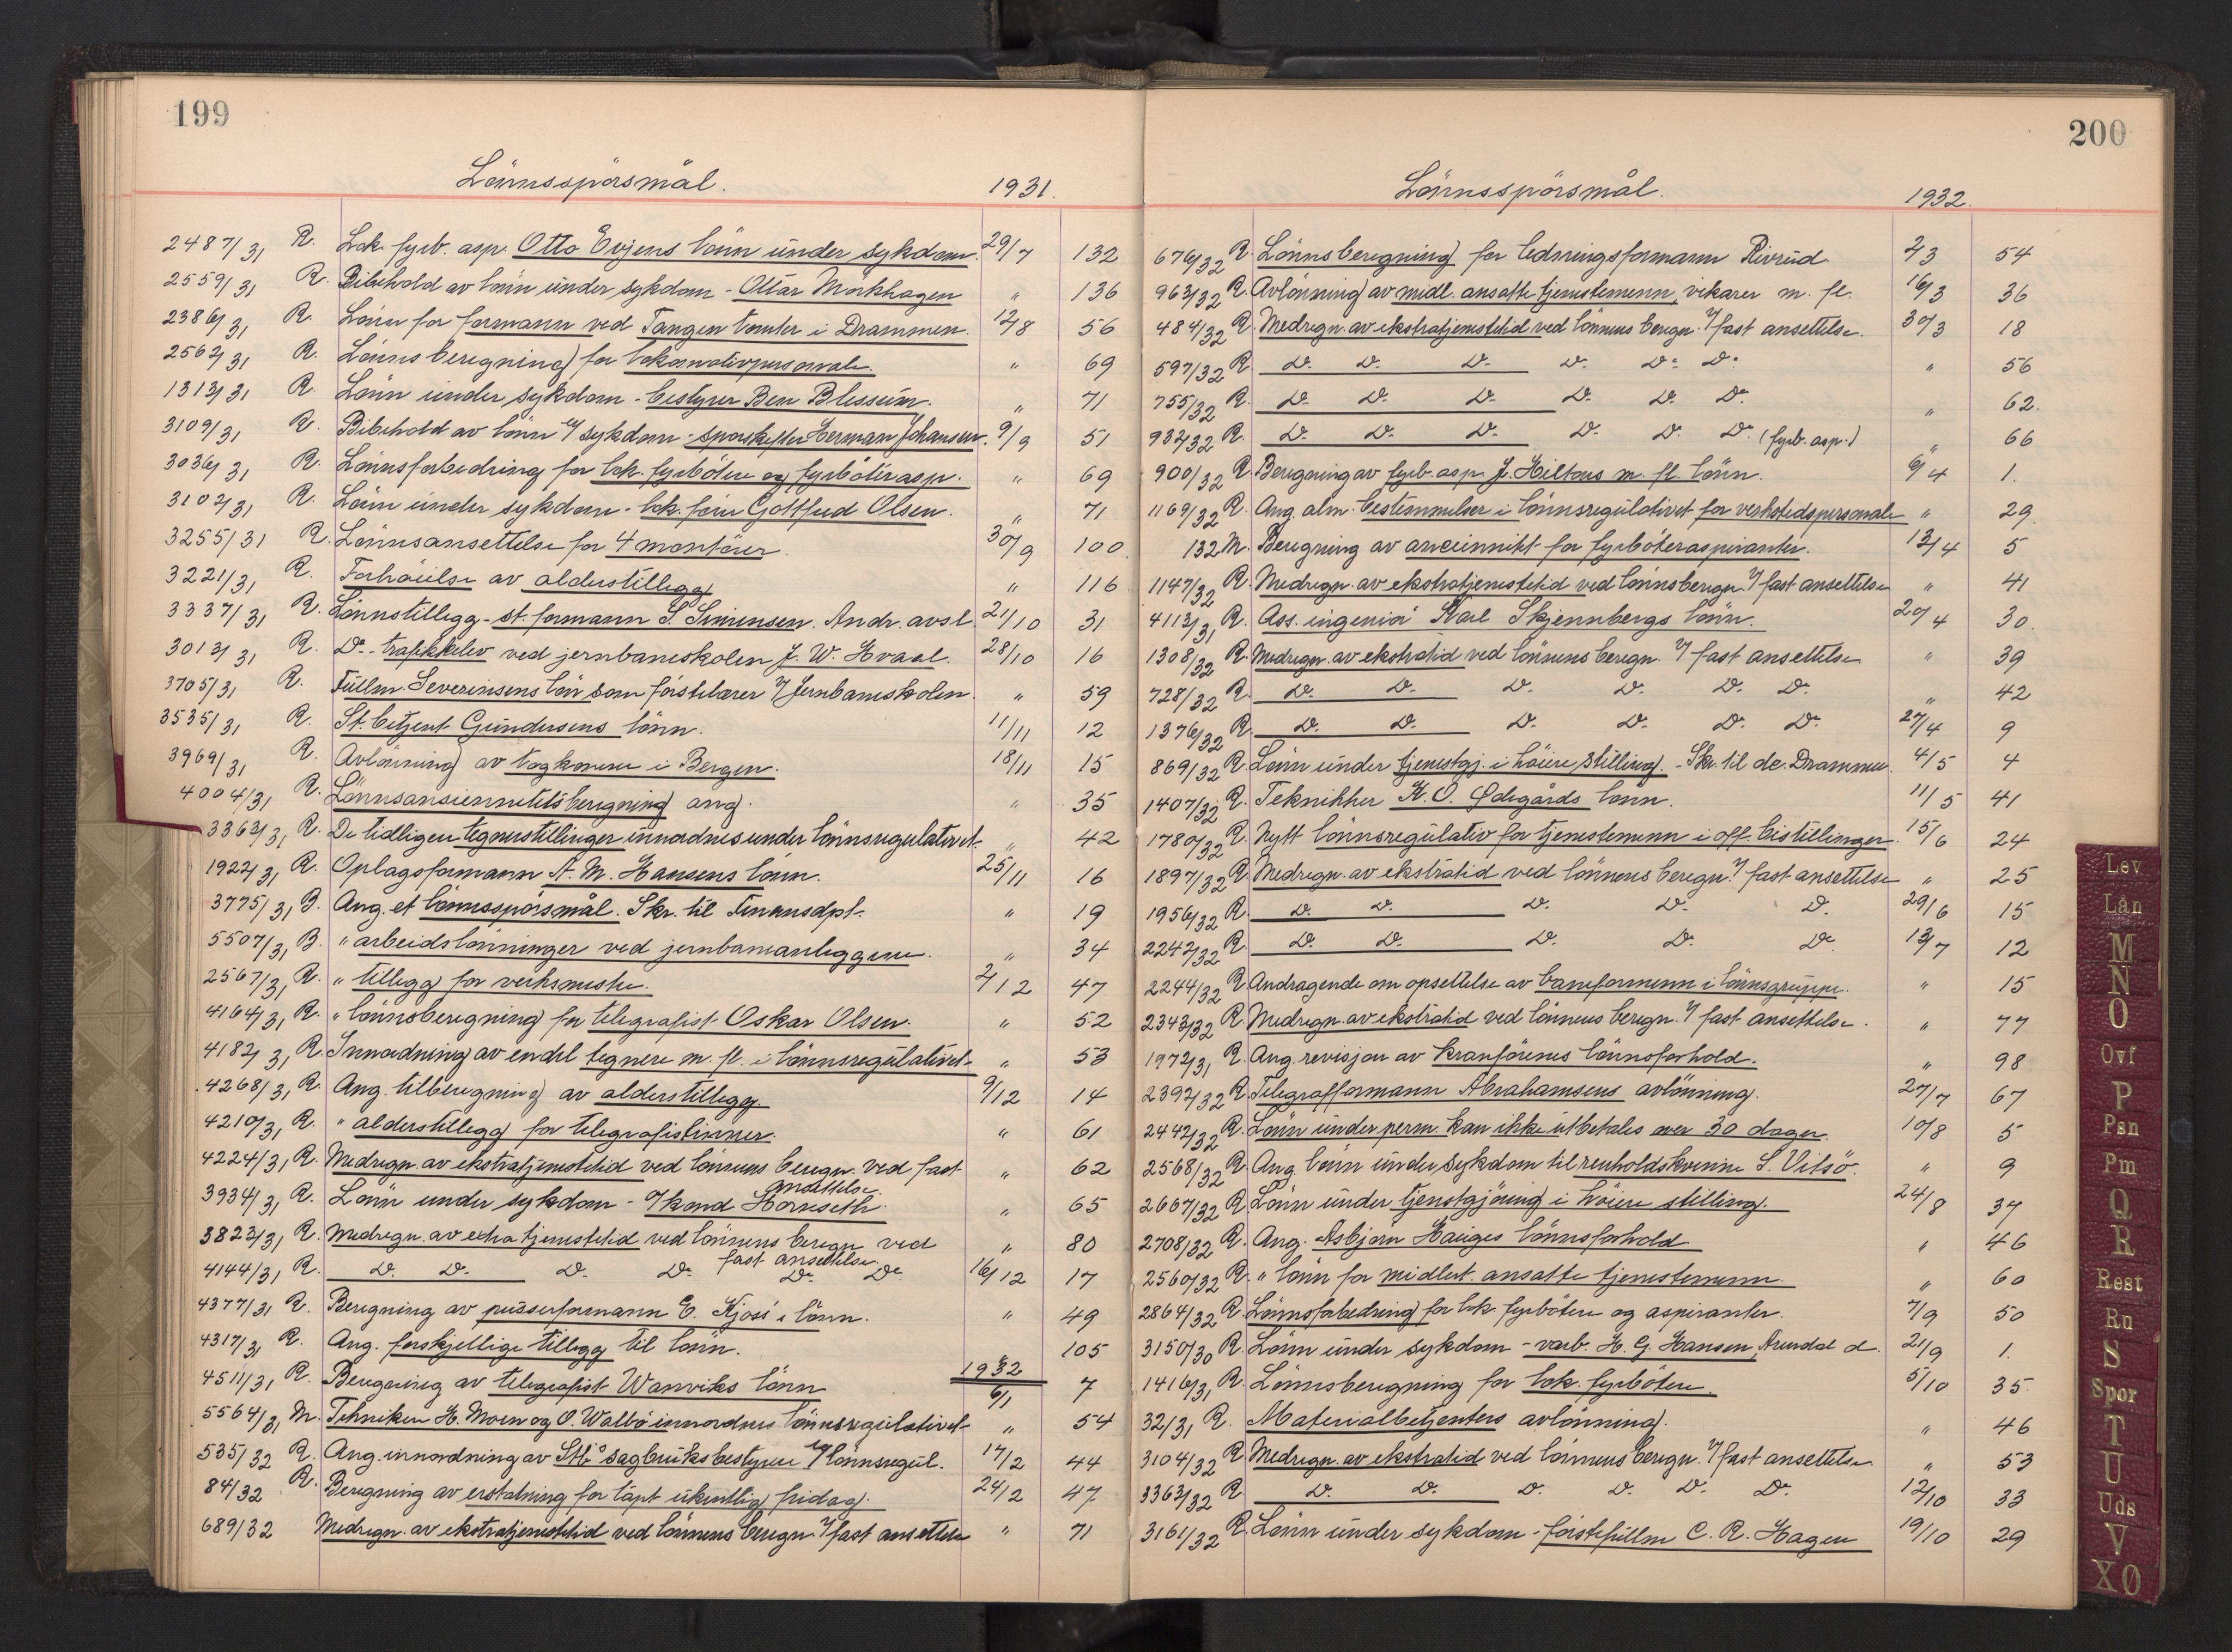 199
Lönnsspörsmål. 1931.
2487/31 R. Lok. fyrb. asp. Otto Evjens lönn under sykdom. 29/7 132
2559/31 R. Bibehold av lönn under sykdom - Ottar Morkhagen " 136
2386/31 R. Lönn for formann ved Tangen tomter i Drammen. 12/8 56
2562/31 R. Lönnsberegning for lokomotivpersonale. " 69
1313/31 R. Lönn under sykdom - bestyrer Ben Blessum. " 71
3109/31 R. Bibehold av lönn u/ sykdom - sporskifter Herman Johansen. 9/9 51
3036/31 R. Lönnsforbedring for lok. fyrbötere og fyrböterasp. " 69
3102/31 R. Lönn under sykdom - lok. förer Gottfred Olsen. " 71
3255/31 R. Lönnsansettelse for 4 montörer. 30/9 100
3221/31 R. Forhöielse av alderstillegg " 116
3337/31 R. Lönnstillegg - st. formann S. Simensen. Andr. avsl. 21/10 31
3013/31 R. Do - trafikkelev ved jernbaneskolen J. W. Hvaal. 28/10 16
3705/31 R. Fullm. Severinsens lön som förstelærer v/ Jernbaneskolen. " 59
3535/31 R. St. betjent Gundersens lönn. 11/11 12
3969/31 R. Avlönning av togkonere i Bergen. 18/11 15
4004/31 R. Lönnsansiennitetsberegning ang. " 35
3362/31 R. De tidligere tegnerstillinger innordnes under lönnsregulativet. " 42
1922/31 R. Oplagsformann A. M. Hansens lönn. 25/11 16
3775/31 B. Ang. et lönnsspörsmål. Skr. til Finansdpt. " 19
5507/31 B. " arbeidslönninger ved jernbaneanleggene. " 34
2567/31 R. " tillegg for verksmestre. 2/12 47
4164/31 R. " lönnsberegning for telegrafist Oskar Olsen. " 52
4182/31 R. Innordning av endel tegnere m. fl. i lönnsregulativet " 53
4268/31 R. Ang. tilberegning av alderstillegg. 9/12 14
4210/31 R. " alderstillegg for telegrafistinner. " 61
4224/31 R. Medregn. av ekstratjenestetid ved lönnens beregn. ved fast ansettelse. " 62
3934/31 R. Lönn under sykdom - Horneseth. " 65
3823/31 R. Medregn. av extra tjenestetid ved lönnens beregn ved fast ansettelse. " 80
4144/31 R. Do. Do. Do. Do Do. Do 16/12 17
4377/31 R. Beregning av pusserformann E. Kjos's lönn. " 49
4317/31 R. Ang. forskjellige tillegg til lönn. 105
4511/31 R. Beregning av telegrafist Wanviks lönn 1932 6/1 7
5564/31 M. Tekniker H. Moen og O. Walbö innordnes lönnsregulativet " 54
535/32 R. Ang. innordning av Stb. sagbruksbestyrer i lönnsregul. 17/2 44
84/32 R. Beregning av erstatning for tapt ukentlig fridag. 24/2 47
689/32 Medregn. av ekstratjenestetid ved lönnens beregn. v/ fast ansettelse " 71
200
Lönnsspörsmål. 1932.
676/32 R. Lönnsberegning for ledningsformann Rivrud. 2/3 54
963/32 R. Avlönning av midl. ansatte tjenestemenn, vikarer m. fl. 16/3 36
484/32 R. Medregn. av ekstratjenestetid ved lönnens beregn. v/ fast ansettelse. 30/3 18
597/32 R. Do. Do. Do. Do. Do. Do. " 56
755/32 R. Do. Do. Do. Do. Do. Do. " 62.
932/32 R. Do. Do. Do. Do. Do. Do. (fyrb. asp.) " 66
900/32 R. Beregning av fyrb. asp. J. Hiltons m. fl. lönn. 6/4 1.
1169/32 R. Ang. alm. bestemmelser i lönnsregulativet for verkstedspersonale " 29.
132 M. Beregning av anciennitet for fyrböteraspiranter. 13/4 5
1147/32 R. Medregn. av ekstratjenestetid ved lönnsberegn. v/ fast ansettelse " 41
4113/31 R. Ass. ingeniör Karl Skjennbergs lönn. 20/4 30.
1308/32 R. Medregn. av ekstratid ved lönnens beregn. v/ fast ansettelse " 39
728/32 R. Do. Do. Do. Do. Do. Do. " 42
1376/32 R. Do. Do. Do. Do. Do. Do. 27/4 9
869/32 R. Lönn under tjenestgj. i höiere stilling. - Skr. til dc. Drammen. 4/5 4
1407/32 R. Tekniker K. O. Ødegårds lönn. 11/5 41
1780/32 R. Nytt lönnsregulativ for tjenestemenn i off. bistillinger. 15/6 24
1897/32 R. Medregn. av ekstratid ved lönnens beregn. v/ fast ansettelse " 25
1956/32 R. Do. Do. Do. Do. Do. 29/6 15
2242/32 R. Do. Do. Do. Do. Do 13/7 12
2244/32 R. Andragende om opsettelse av baneformenn i lönnsgruppe. " 15
2343/32 R. Medregn. av ekstratid ved lönnens beregn. v/ fast ansettelse. " 77
1972/31 R. Ang. revisjon av kranförernes lönnsforhold. " 98
2392/32 R. Telegrafformann Abrahamsens avlönning. 27/7 67
2442/32 R. Lönn under perm. kan ikke utbetales over 30 dager. 10/8 5
2568/32 R. Ang. lönn under sykdom til renholdskvinne S. Vitsö. " 9
2667/32 R. Lönn under tjenstgjöring i höiere stilling. 24/8 34
2708/32 R. Ang. Asbjörn Hauges lönnsforhold " 46
2560/32 R. " lönn for midlert. ansatte tjenestemenn. " 60
2864/32 R. Lönnsforbedring for lok. fyrbötere og aspiranter. 7/9 50
3150/30 R. Lönn under sykdom - varb. H. G. Hansen, Arendal d. 21/9 1.
1416/31 R. Lönnsberegning for lok. fyrbötere. 5/10 35
32/31 R. Materialbetjenters avlönning. " 46
3104/32 R. Medregn. av ekstratid ved lönnens beregn. v/ fast ansettelse. " 53
3363/32 R. Do. Do. Do. Do. Do. Do. 12/10 33
3161/32 R. Lönn under sykdom - förstefullm C. R. Hagen 19/10 29
Lev
Lån
M
N
O
Ovf
P
Psn
Pm
Q
R
Rest
Ru
S
Spor
T
U
Uds
V
XØ